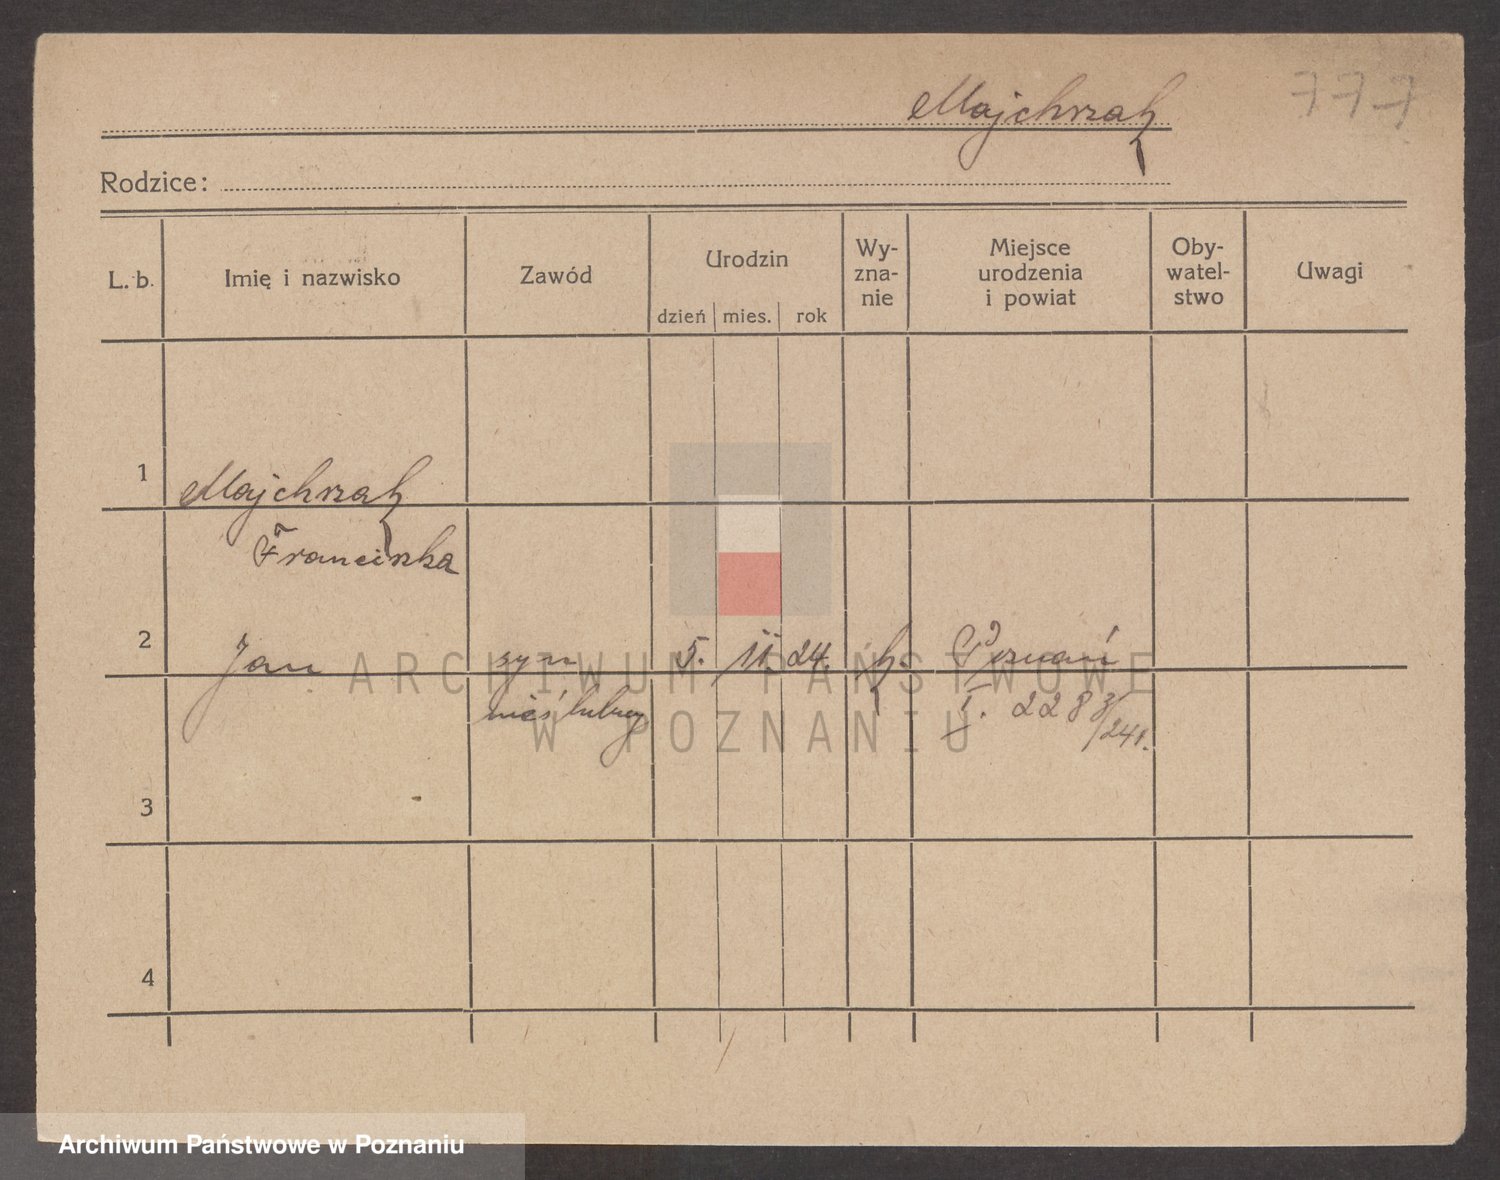 Majchrzak
777
Rodzice:
L. b.
Imię i nazwisko
Zawód
Urodzin
dzień
mies.
rok
Wy-
zna-
nie
Miejsce
urodzenia
i powiat
Oby-
watel-
stwo
Uwagi
1
Majchrzak
Franciszka
2
Jan
syn
5.
11.
24.
k.
Poznań
nieślubny
I. 2283/24r.
3
4
ARCHIWUM PAŃSTWOWE
W POZNANIU
Archiwum Państwowe w Poznaniu